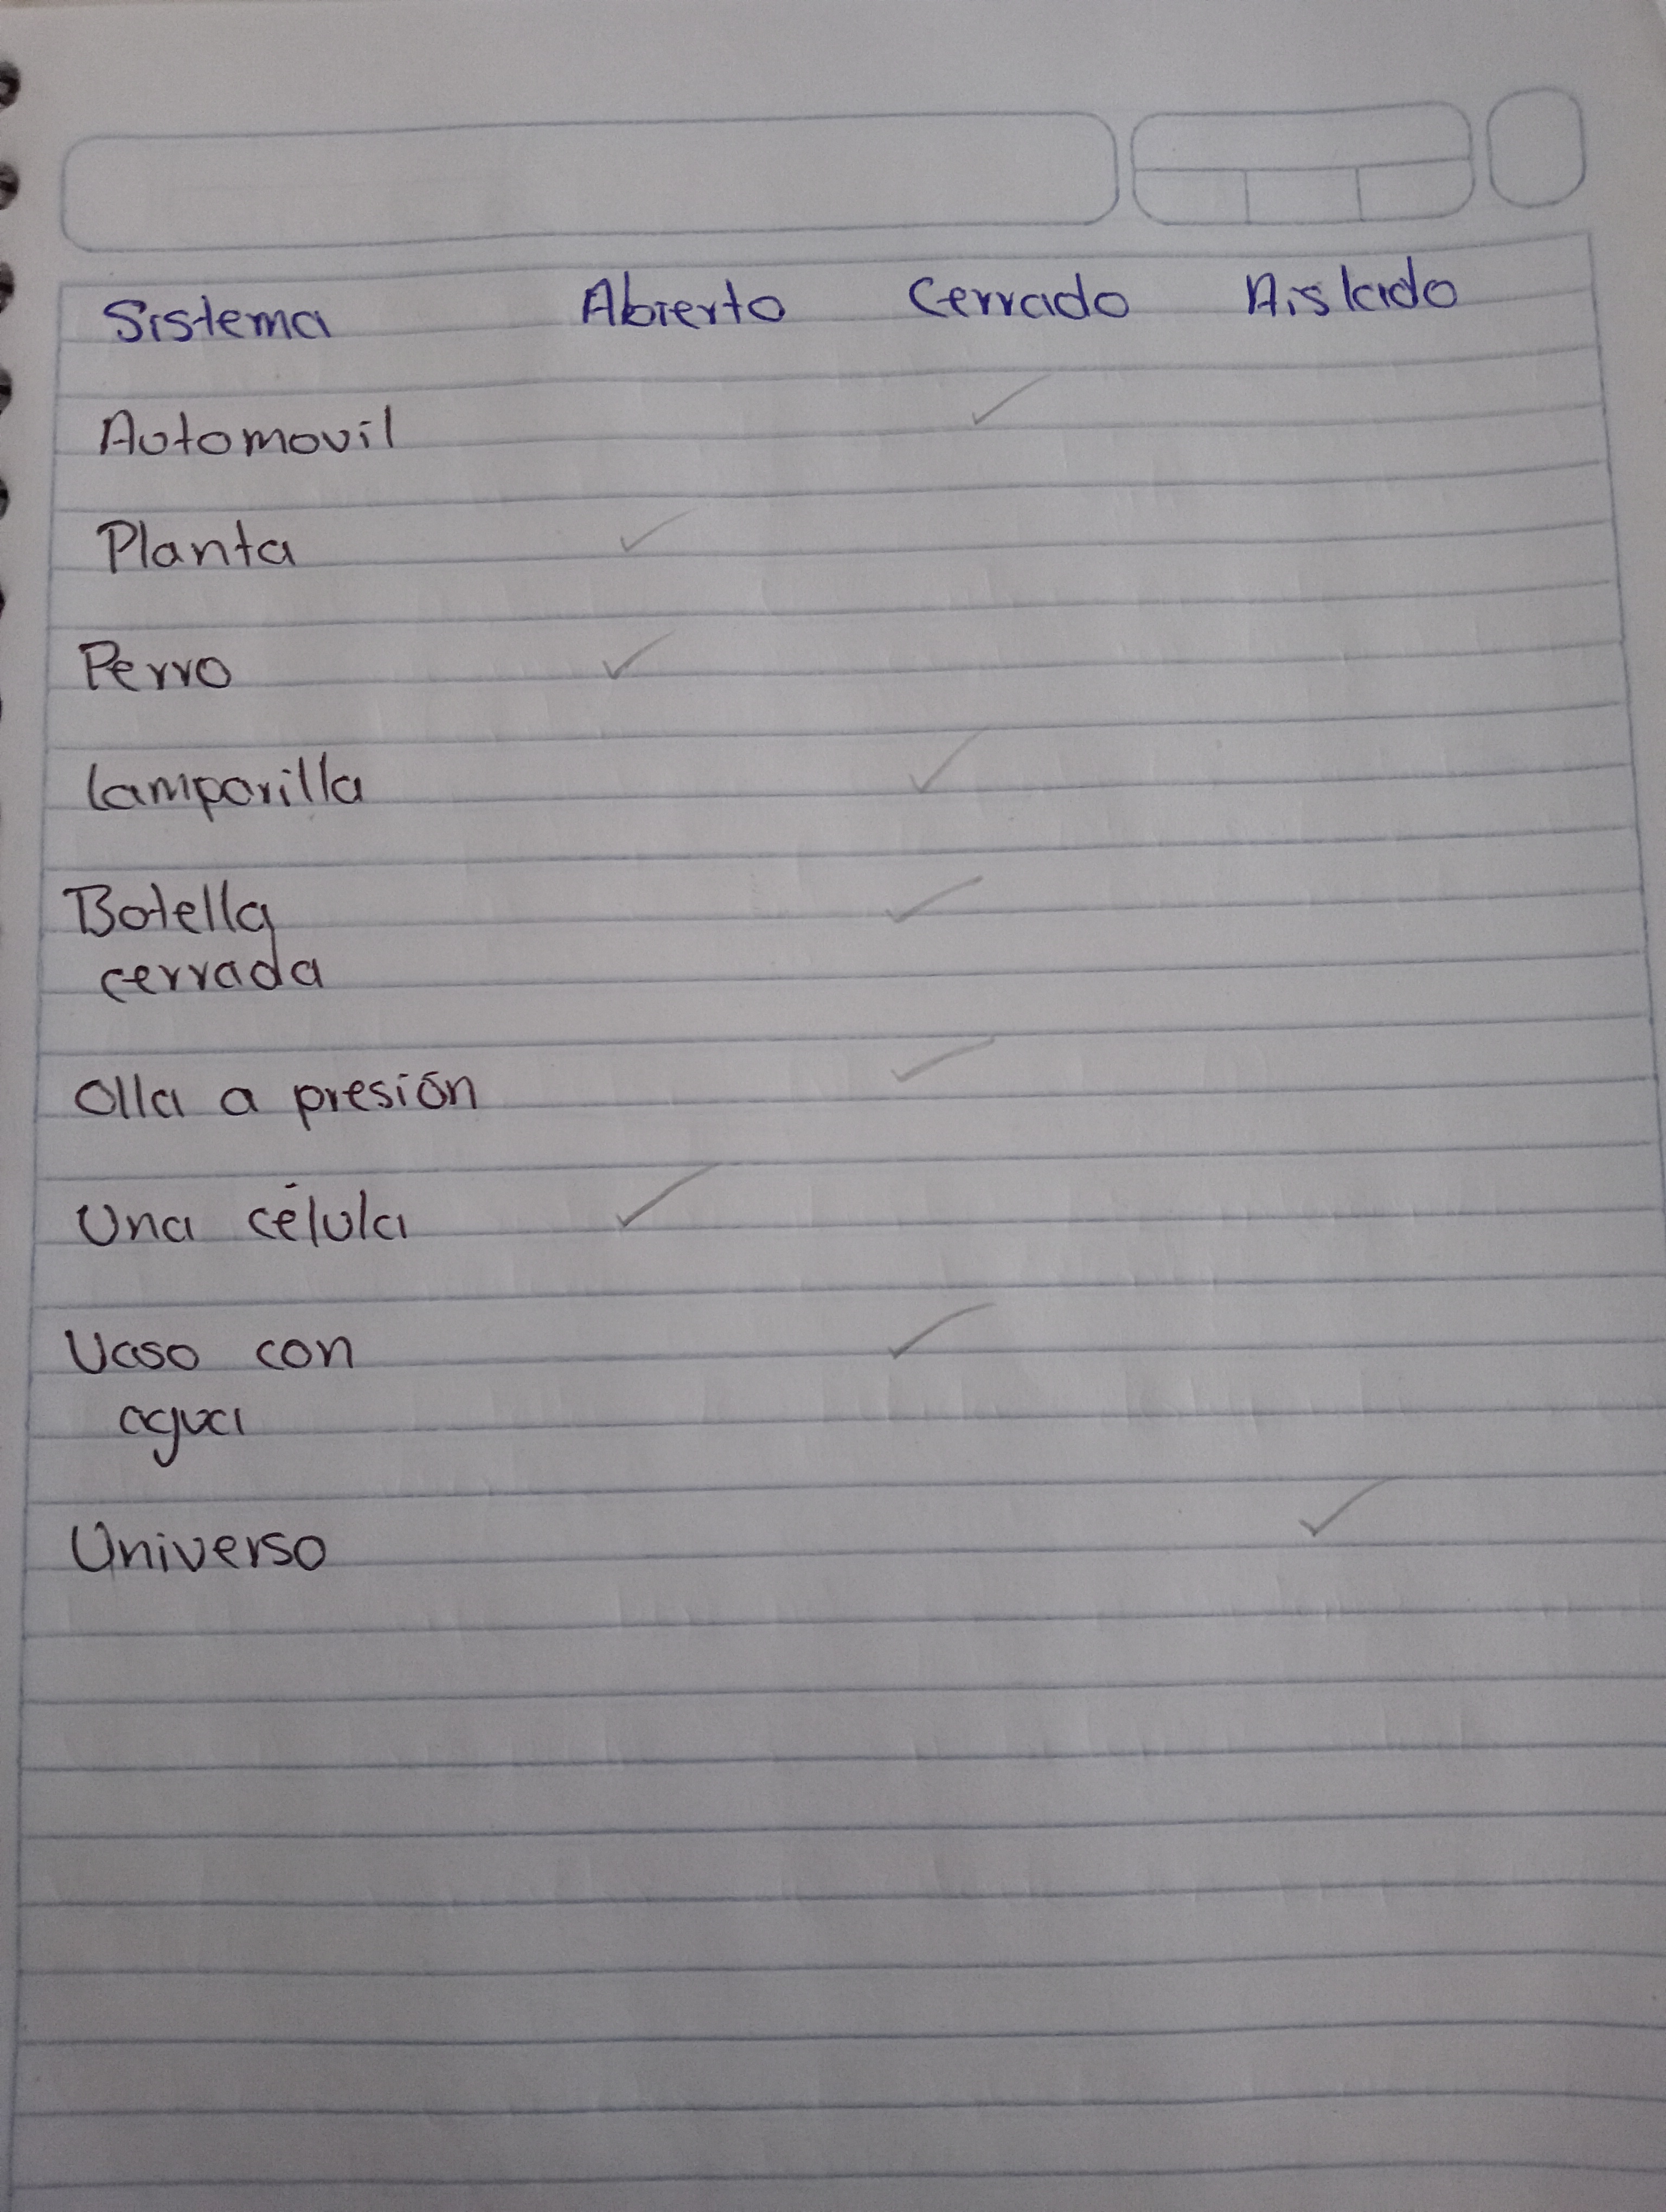 Sistema Abierto Cerrado Aislado
Automovil ✓
Planta ✓
Perro ✓
Lamparilla ✓
Botella ✓
cerrada
Olla a presión ✓
Una célula ✓
Vaso con ✓
agua
Universo ✓